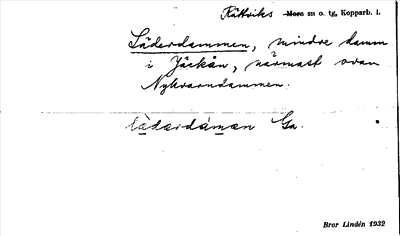 Rättviks ~~Mora~~ sn o. tg, Kopparb. l.
Läderdammen, mindre damm
i Jäckån, närmast ovan
Nykvarndammen.
lä̀dərdámən Ga.
Bror Lindén 1932